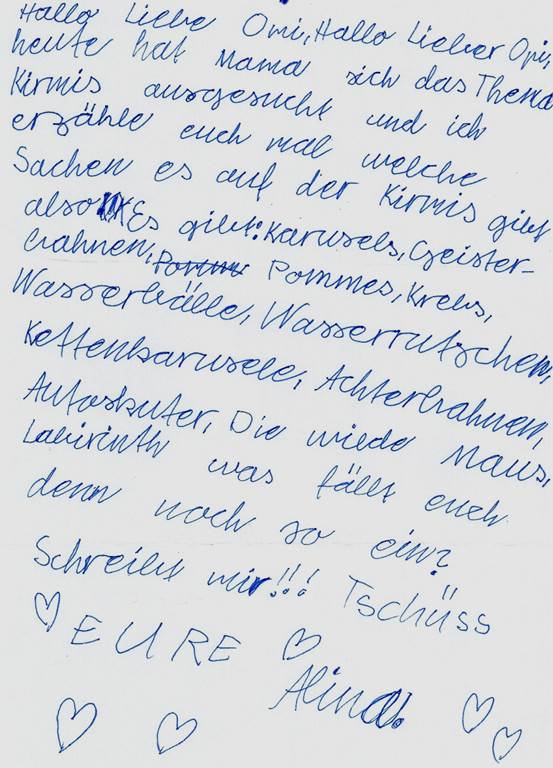 Hallo Liebe Omi, Hallo Lieber Opi,
heute hat Mama sich das Thema
Kirmis ausgesucht und ich
erzähle euch mal welche
Sachen es auf der Kirmis gibt
also Es gibt: Karusels, Geister-
bahnen, Pommes, Krebs,
Wasserbälle, Wasserrutschen,
Kettenkarusele, Achterbahnen,
Autoskuter, Die wiede Maus,
Labirinth was fällt euch
denn noch so ein?
Schreibt mir!!! Tschüss
EURE
Alina!